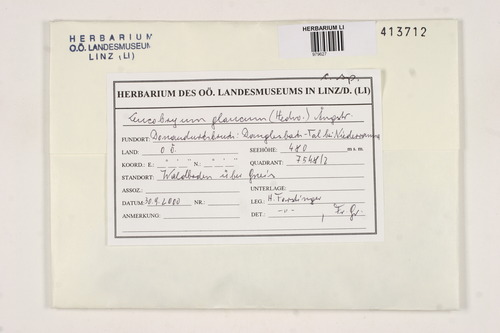 HERBARIUM
O.Ö. LANDESMUSEUM
LINZ (LI)
HERBARIUM LI
413712
c. sp.
HERBARIUM DES OÖ. LANDESMUSEUMS IN LINZ/D. (LI)
Leucobryum glaucum (Hedw.) Ångstr.
FUNDORT: Donaudurchbruch: Dongelsbach-Tal bei Niederranna
LAND: OÖ. SEEHÖHE: 480 m s. m.
KOORD.: E.: ° ' " N.: ° ' " QUADRANT: 7548/2
STANDORT: Waldboden über Gneis
ASSOZ.: UNTERLAGE:
DATUM: 30.9.2000 NR.: LEG.: H.
ANMERKUNG: DET.: -"- , Fr. Gr.